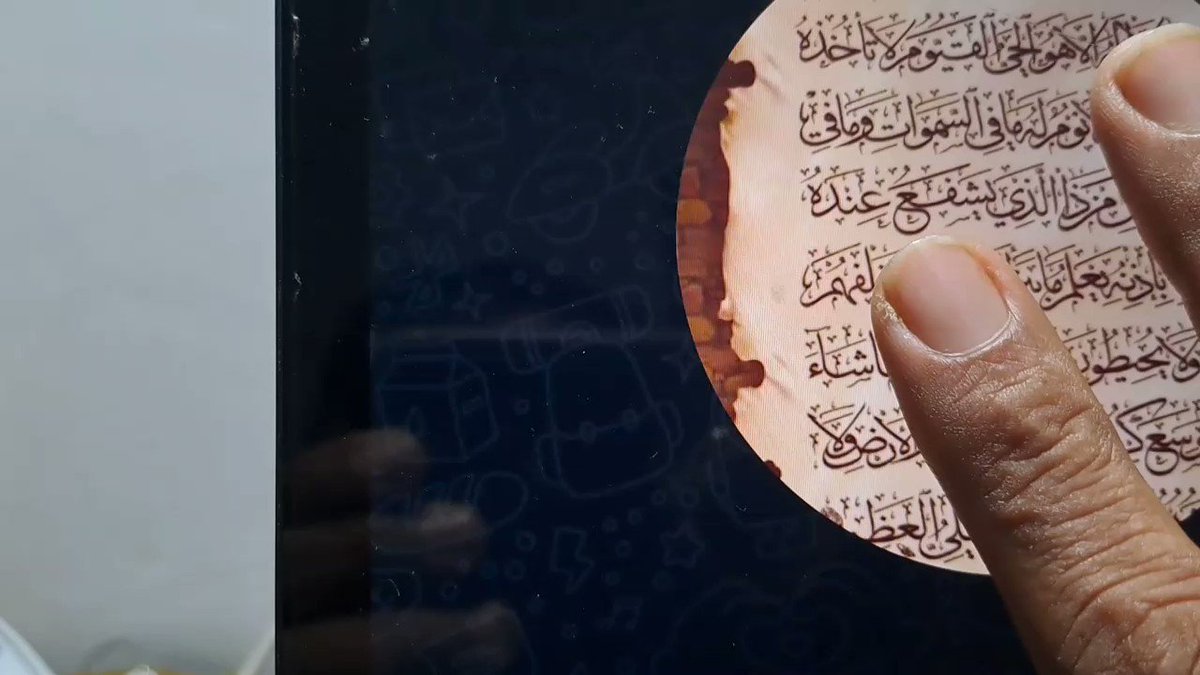 إلا هو الحي القيوم لا تأخذه
نوم له ما في السموات وما في
من ذا الذي يشفع عنده
بإذنه يعلم ما
ولا يحيطون شاء
وسع الأرض ولا
العظ